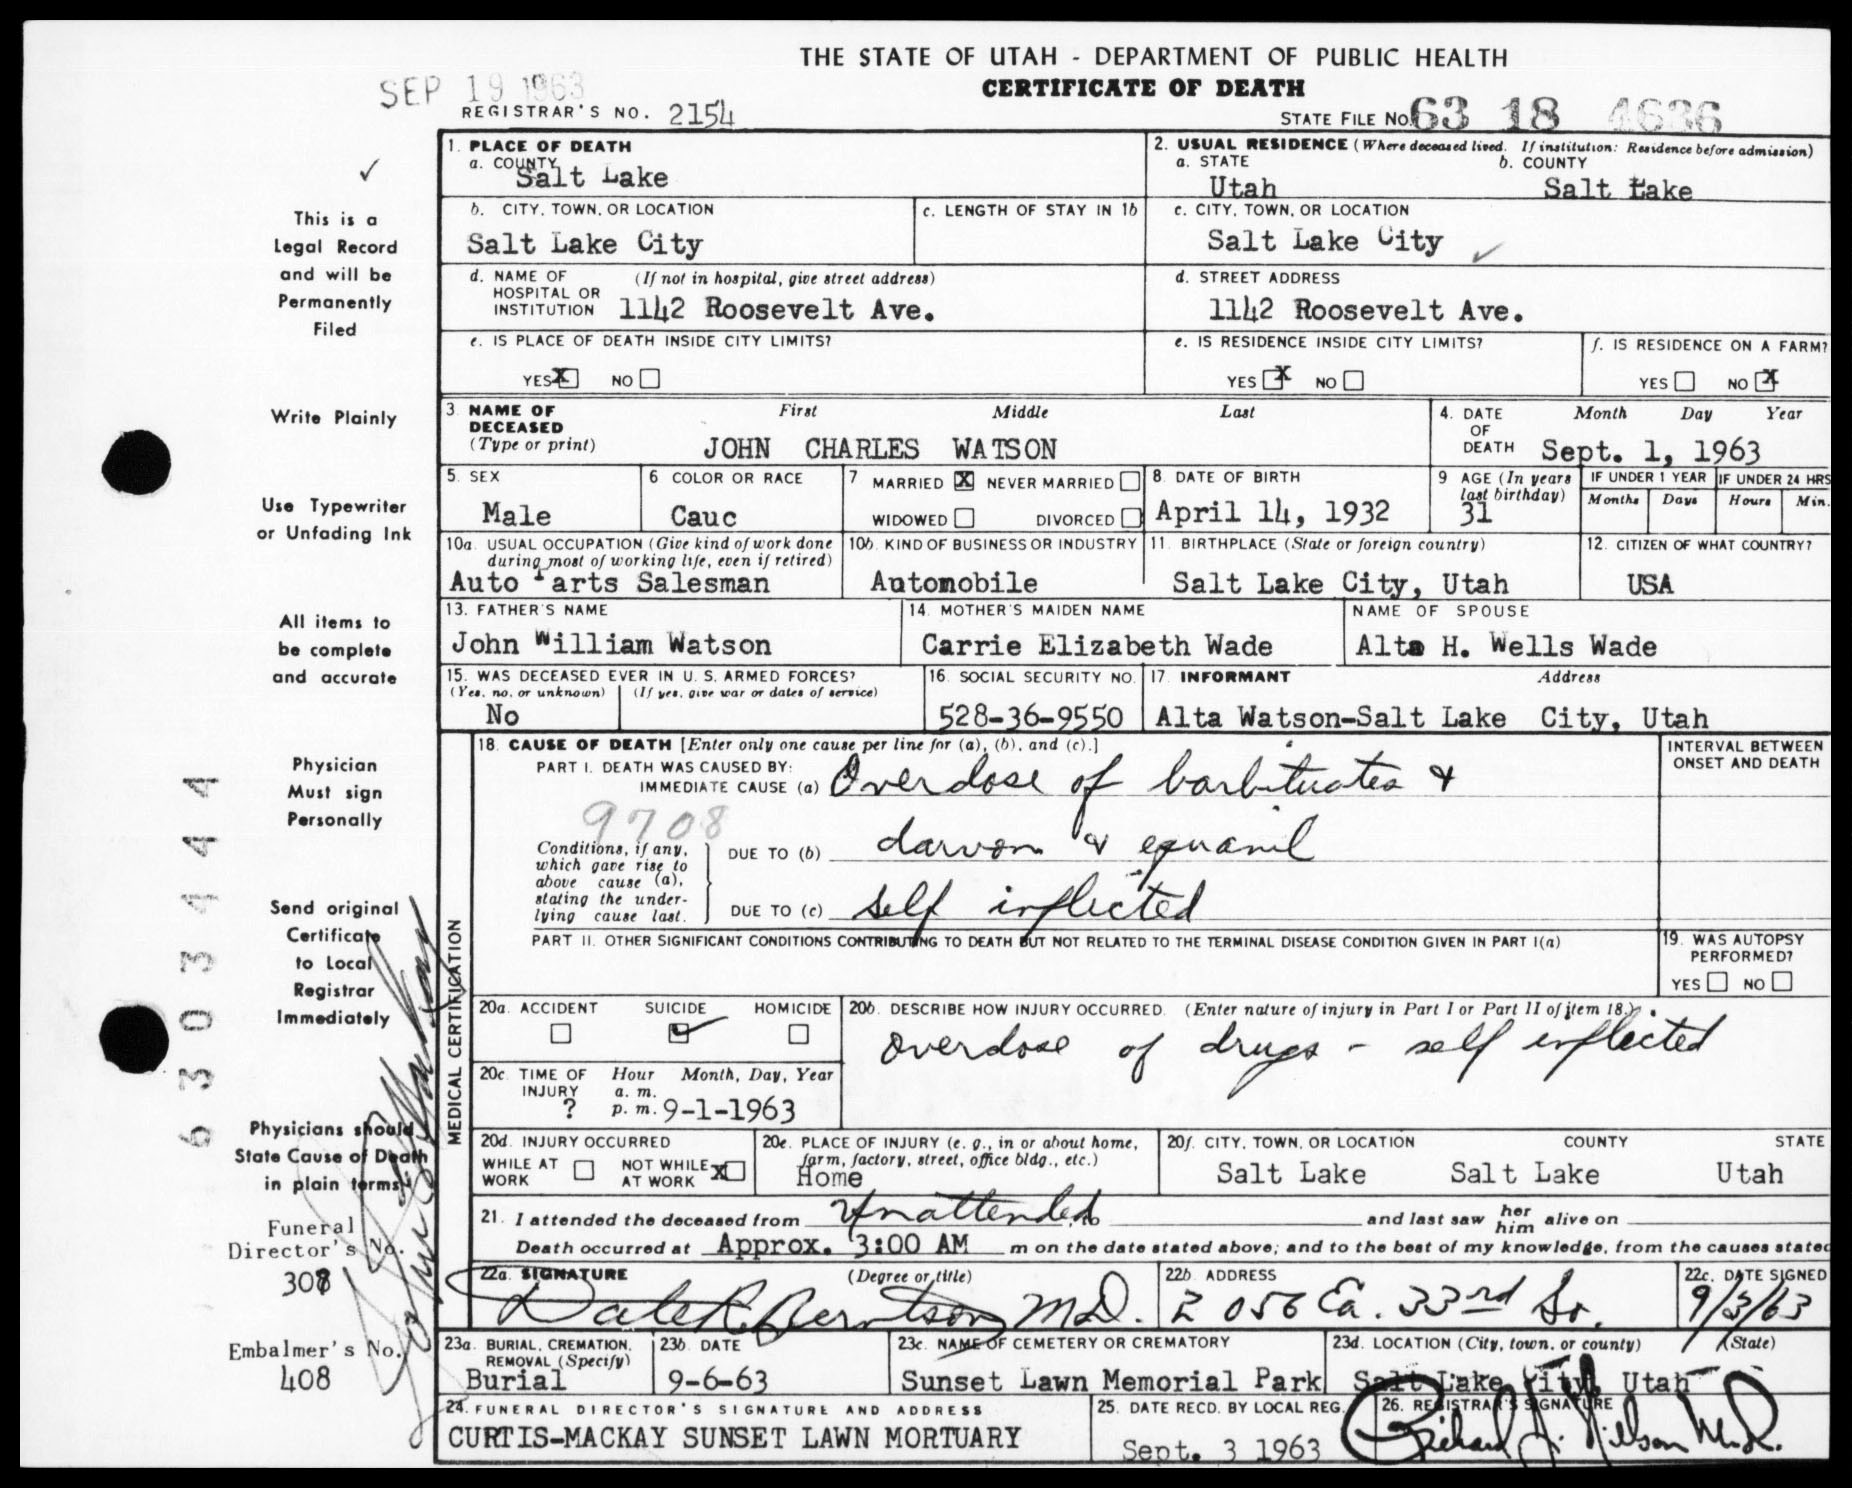 THE STATE OF UTAH - DEPARTMENT OF PUBLIC HEALTH
CERTIFICATE OF DEATH
SEP 19 1963
REGISTRAR'S NO. 2154
STATE FILE NO. 63 18 4636
1. PLACE OF DEATH
a. COUNTY
Salt Lake
2. USUAL RESIDENCE (Where deceased lived. If institution: Residence before admission)
a. STATE
Utah
b. COUNTY
Salt Lake
b. CITY, TOWN, OR LOCATION
Salt Lake City
c. LENGTH OF STAY IN 1b
c. CITY, TOWN, OR LOCATION
Salt Lake City
d. NAME OF HOSPITAL OR INSTITUTION (If not in hospital, give street address)
1142 Roosevelt Ave.
d. STREET ADDRESS
1142 Roosevelt Ave.
e. IS PLACE OF DEATH INSIDE CITY LIMITS?
YES X NO
e. IS RESIDENCE INSIDE CITY LIMITS?
YES X NO
f. IS RESIDENCE ON A FARM?
YES NO X
3. NAME OF DECEASED (Type or print)
First Middle Last
JOHN CHARLES WATSON
4. DATE OF DEATH Month Day Year
Sept. 1, 1963
5. SEX
Male
6 COLOR OR RACE
Cauc
7 MARRIED X NEVER MARRIED
WIDOWED DIVORCED
8 DATE OF BIRTH
April 14, 1932
9 AGE (In years last birthday)
31
IF UNDER 1 YEAR
Months Days
IF UNDER 24 HRS
Hours Min.
10a. USUAL OCCUPATION (Give kind of work done during most of working life, even if retired)
Auto Parts Salesman
10b. KIND OF BUSINESS OR INDUSTRY
Automobile
11. BIRTHPLACE (State or foreign country)
Salt Lake City, Utah
12. CITIZEN OF WHAT COUNTRY?
USA
13. FATHER'S NAME
John William Watson
14. MOTHER'S MAIDEN NAME
Carrie Elizabeth Wade
NAME OF SPOUSE
Alta H. Wells Wade
15. WAS DECEASED EVER IN U.S. ARMED FORCES?
(Yes, no, or unknown) (If yes, give war or dates of service)
No
16. SOCIAL SECURITY NO.
528-36-9550
17. INFORMANT Address
Alta Watson-Salt Lake City, Utah
MEDICAL CERTIFICATION
18. CAUSE OF DEATH [Enter only one cause per line for (a), (b), and (c).]
PART I. DEATH WAS CAUSED BY:
IMMEDIATE CAUSE (a) Overdose of barbituates &
9708
Conditions, if any, which gave rise to above cause (a), stating the underlying cause last.
DUE TO (b) darvon & equanil
DUE TO (c) self inflicted
INTERVAL BETWEEN ONSET AND DEATH
PART II. OTHER SIGNIFICANT CONDITIONS CONTRIBUTING TO DEATH BUT NOT RELATED TO THE TERMINAL DISEASE CONDITION GIVEN IN PART I(a)
19. WAS AUTOPSY PERFORMED?
YES NO
20a. ACCIDENT SUICIDE HOMICIDE
20b. DESCRIBE HOW INJURY OCCURRED. (Enter nature of injury in Part I or Part II of item 18.)
Overdose of drugs - self inflicted
20c. TIME OF INJURY Hour Month, Day, Year
a. m.
? p. m. 9-1-1963
20d. INJURY OCCURRED
WHILE AT WORK NOT WHILE AT WORK X
20e. PLACE OF INJURY (e. g., in or about home, farm, factory, street, office bldg., etc.)
Home
20f. CITY, TOWN, OR LOCATION COUNTY STATE
Salt Lake Salt Lake Utah
21. I attended the deceased from Unattended, to and last saw her him alive on
Death occurred at Approx. 3:00 AM m on the date stated above; and to the best of my knowledge, from the causes stated
22a. SIGNATURE (Degree or title)
M.D.
22b. ADDRESS
2056 Ea. 33rd So.
22c. DATE SIGNED
9/3/63
23a. BURIAL, CREMATION, REMOVAL (Specify)
Burial
23b. DATE
9-6-63
23c. NAME OF CEMETERY OR CREMATORY
Sunset Lawn Memorial Park
23d. LOCATION (City, town, or county) (State)
Salt Lake City, Utah
24. FUNERAL DIRECTOR'S SIGNATURE AND ADDRESS
CURTIS-MACKAY SUNSET LAWN MORTUARY
25. DATE RECD. BY LOCAL REG.
Sept. 3 1963
26. REGISTRAR'S SIGNATURE
Richard H. Nilson M.D.
This is a
Legal Record
and will be
Permanently
Filed
Write Plainly
Use Typewriter
or Unfading Ink
All items to
be complete
and accurate
Physician
Must sign
Personally
Send original
Certificate
to Local
Registrar
Immediately
Physicians should
State Cause of Death
in plain terms
Funeral
Director's No.
308
Embalmer's No.
408
6303444